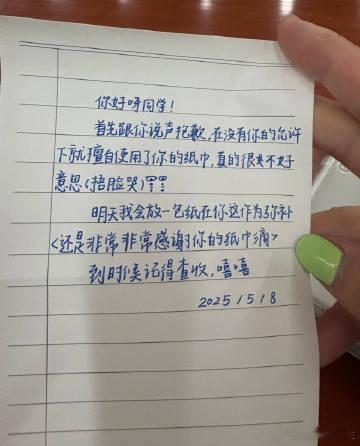 你好呀同学！
首先跟你说声抱歉，在没有你的允许
下就擅自使用了你的纸巾，真的很不好
意思（捂脸哭）
明天我会放一包纸在你这作为弥补
<还是非常非常感谢你的纸巾滴>
到时候记得查收，嘻嘻
2025/5/8